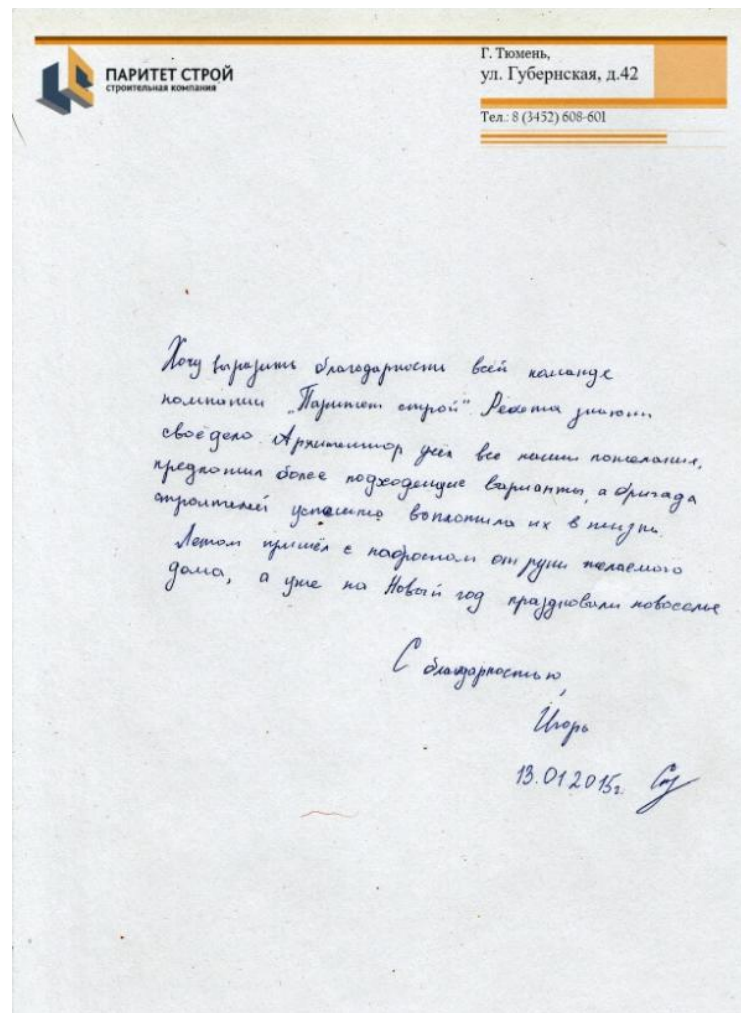 ПАРИТЕТ СТРОЙ
строительная компания
Г. Тюмень,
ул. Губернская, д.42
Тел.: 8 (3452) 608-601
Хочу выразить благодарность всей команде
компании "Паритет строй". Ребята знают
своё дело. Архитектор учёл все наши пожелания,
предложил более подходящие варианты, а бригада
строителей успешно воплотила их в жизнь.
Летом пришёл с наброском от руки желаемого
дома, а уже на Новый год праздновали новоселье
С благодарностью,
Игорь
13.01.2015г.